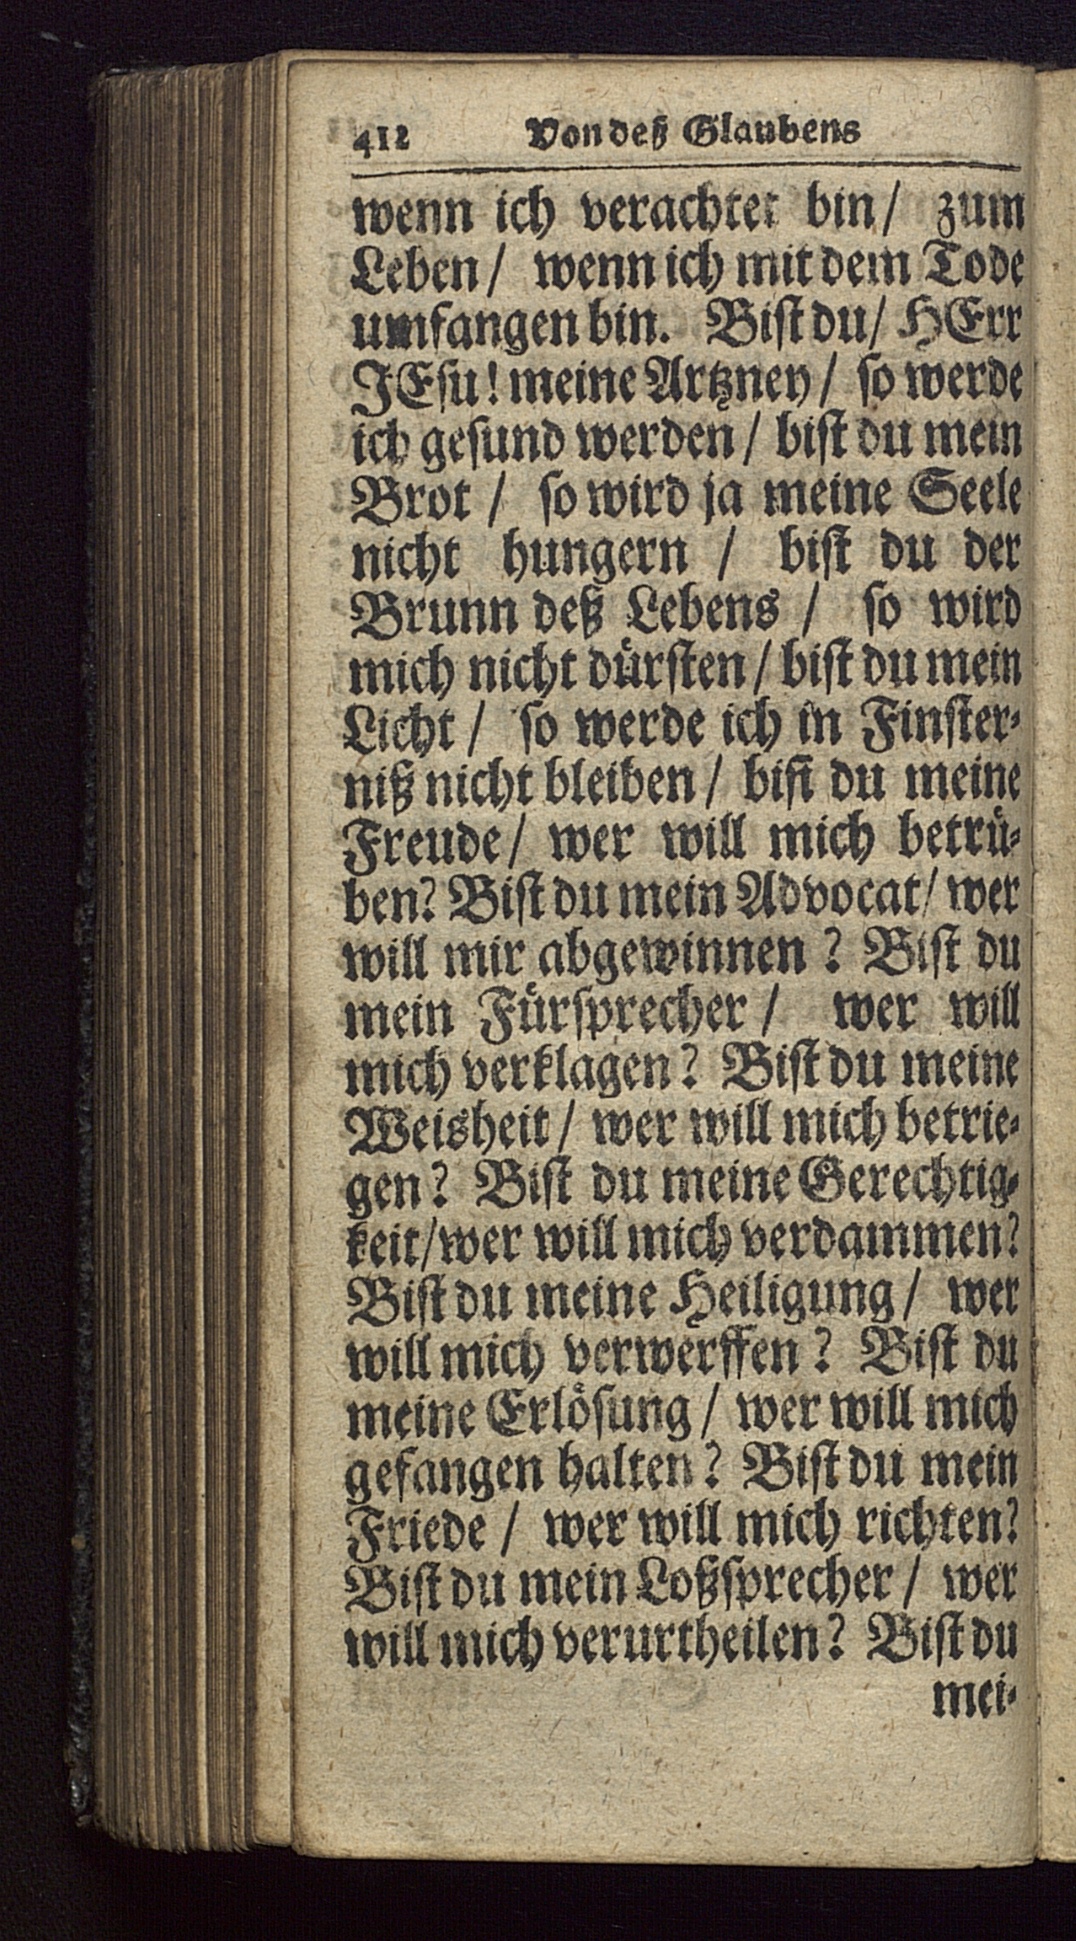 412 Von deß Glaubens
wenn ich verachtet bin / zum
Leben / wenn ich mit dem Tode
umfangen bin. Biſt du / HErr
JEſu! meine Artzney / ſo werde
ich geſund werden / biſt du mein
Brot / ſo wird ja meine Seele
nicht hungern / biſt du der
Brunn deß Lebens / ſo wird
mich nicht dürſten / biſt du mein
Licht / ſo werde ich in Finſter-
niß nicht bleiben / biſt du meine
Freude / wer will mich betrü-
ben? Biſt du mein Advocat / wer
will mir abgewinnen? Biſt du
mein Fürſprecher / wer will
mich verklagen? Biſt du meine
Weisheit / wer will mich betrie-
gen? Biſt du meine Gerechtig-
keit / wer will mich verdammen?
Biſt du meine Heiligung / wer
will mich verwerffen? Biſt du
meine Erlöſung / wer will mich
gefangen halten? Biſt du mein
Friede / wer will mich richten?
Biſt du mein Loßſprecher / wer
will mich verurtheilen? Biſt du
mei-